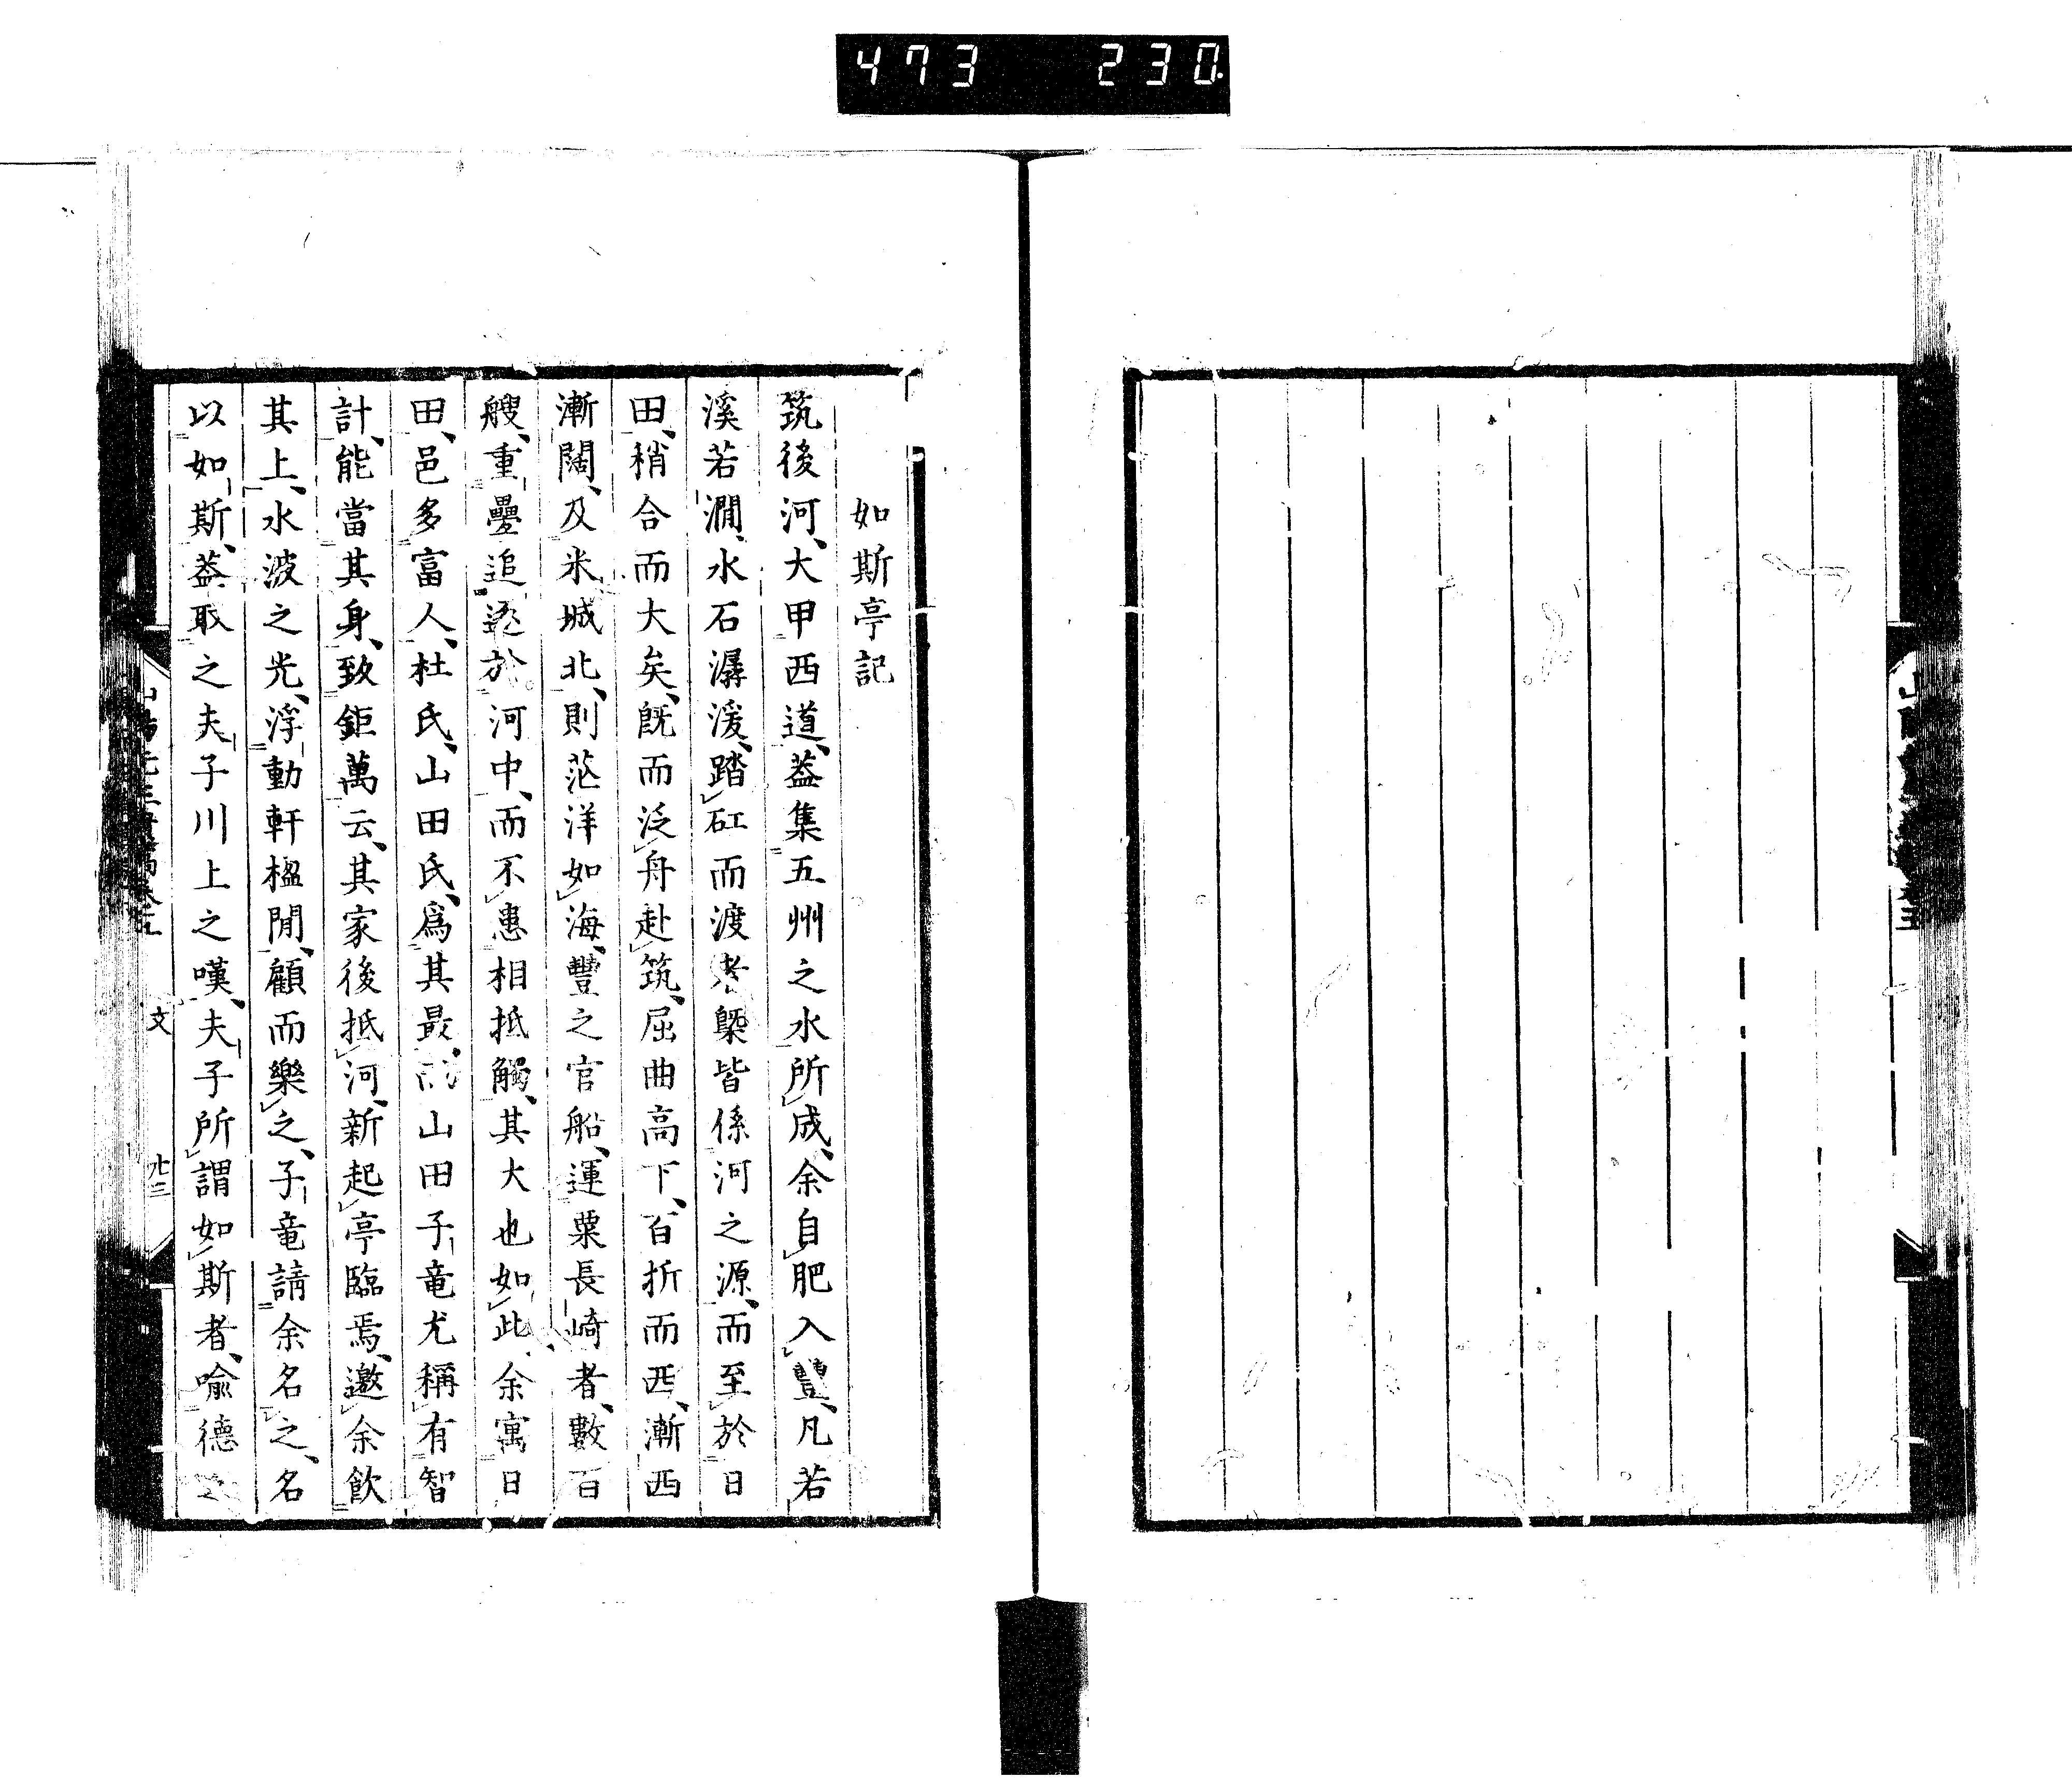 473 230
如斯亭記
筑後河、大甲西道、葢集五州之水所成、余自肥入豐、凡若
溪若澗、水石潺湲、踏矼而渡者槩皆係河之源、而至於日
田、稍合而大矣、既而泛舟赴筑、屈曲高下、百折而西、漸西
漸闊、及米城北、則茫洋如海、豐之官船、運粟長崎者、數百
艘、重疊追逐於河中、而不患相抵觸、其大也如此、余寓日
田、邑多富人、杜氏、山田氏、爲其最、而山田子竜尤稱有智
計、能當其身、致鉅萬云、其家後抵河、新起亭臨焉、邀余飲
其上、水波之光、浮動軒楹閒、顧而樂之、子竜請余名之、名
以如斯、葢取之夫子川上之嘆、夫子所謂如斯者、喩德
文
廿三